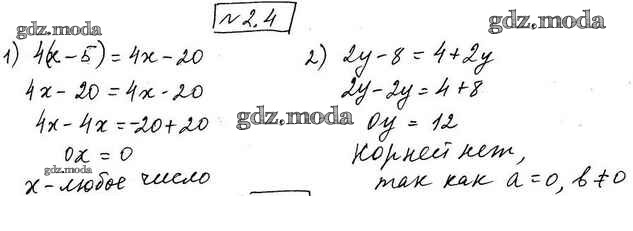 № 2.4
gdz.moda
gdz.moda
1) 4(x-5) = 4x-20
4x-20 = 4x-20
4x-4x = -20+20
0x = 0
gdz.moda
x-любое число
gdz.moda
2) 2y-8 = 4+2y
2y-2y = 4+8
0y = 12
gdz.moda
Корней нет,
так как a=0, b≠0